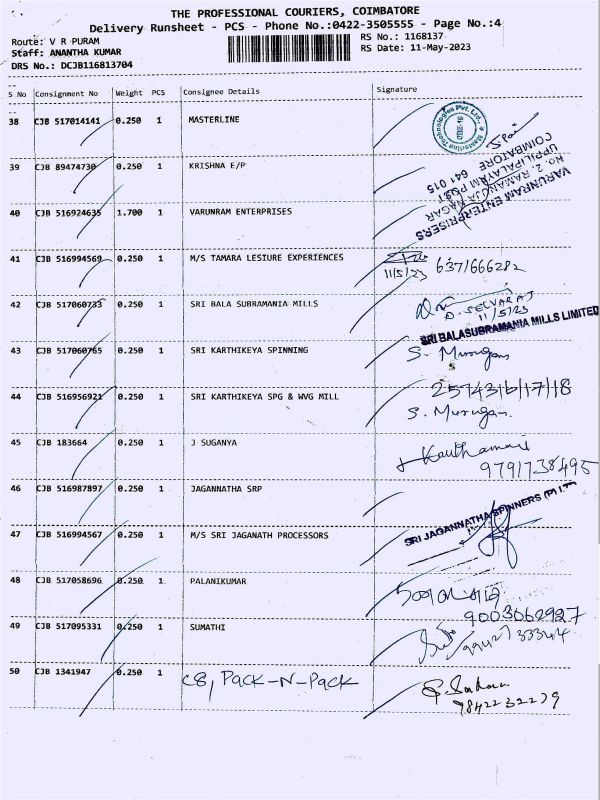 THE PROFESSIONAL COURIERS, COIMBATORE
Delivery Runsheet - PCS - Phone No.:0422-3505555 - Page No.:4
Route: V R PURAM
RS No.: 1168137
Staff: ANANTHA KUMAR
RS Date: 11-May-2023
DRS No.: DCJB116813704
S No Consignment No Weight PCS Consignee Details Signature
38 CJB 517014141 0.250 1 MASTERLINE
39 CJB 89474730 0.250 1 KRISHNA E/P
VARUNRAM ENTERPRISERS
No. 2, RAMANUJA NAGAR
UPPILIPALAYAM POST
COIMBATORE 641 015
40 CJB 516924635 1.700 1 VARUNRAM ENTERPRISES
41 CJB 516994569 0.250 1 M/S TAMARA LESIURE EXPERIENCES
11/5/23 6371666282
42 CJB 517060733 0.250 1 SRI BALA SUBRAMANIA MILLS
D. SELVARAJ
11/5/23
SRI BALASUBRAMANIA MILLS LIMITED
43 CJB 517060765 0.250 1 SRI KARTHIKEYA SPINNING S. Murugan
44 CJB 516956921 0.250 1 SRI KARTHIKEYA SPG & WVG MILL
S. Murugan.
45 CJB 183664 0.250 1 J SUGANYA
9791738495
46 CJB 516987897 0.250 1 JAGANNATHA SRP
SRI JAGANNATHA SPINNERS (P) LTD
47 CJB 516994567 0.250 1 M/S SRI JAGANATH PROCESSORS
48 CJB 517058696 0.250 1 PALANIKUMAR
9003060927
49 CJB 517095331 0.250 1 SUMATHI
9942733344
50 CJB 1341947 0.250 1 C8, PACK-N-PACK
9842232279